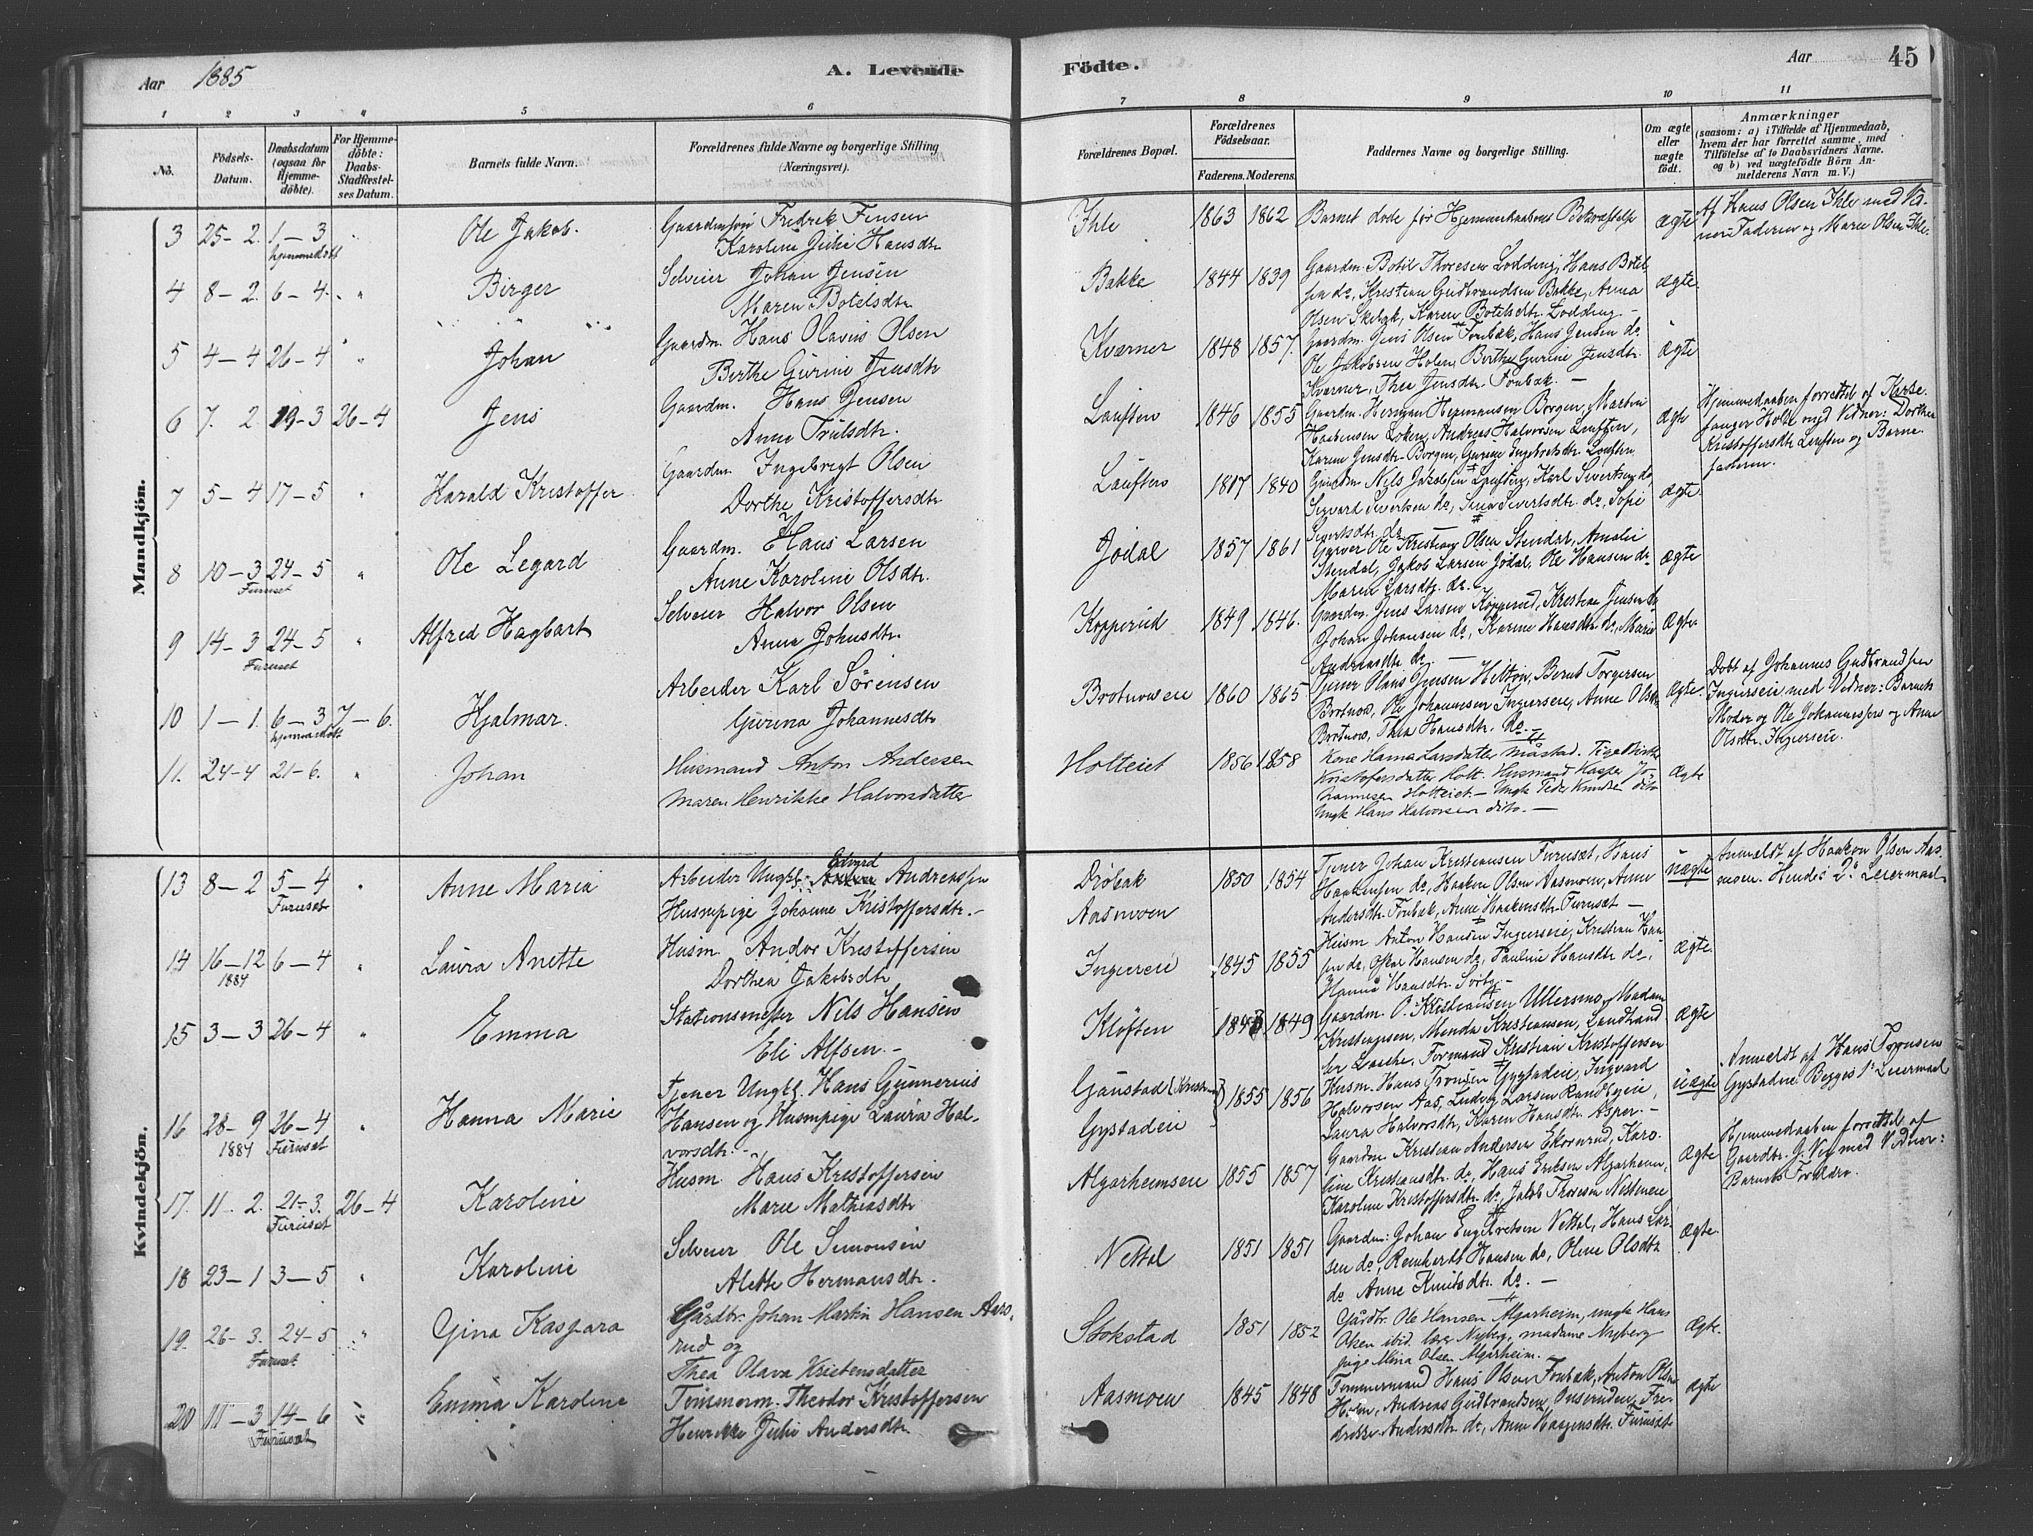 Aar 1885 A. Levende
1 2 3 4 5 6
No.
Födsels-
Datum.
Daabsdatum
(ogsaa för
Hjemme-
döbte).
For Hjemme-
döbte:
Daabs-
Stadfæstel-
ses Datum.
Barnets fulde Navn.
Forældrenes fulde Navne og borgerlige Stilling
(Næringsvei).
Mandkjön.
3 25-2. 1-3 Ole Jakob. Gaardmson Fredrik Jensen
hjemmedöbt Karoline Julie Hansdtr
4 8-2. 6-4. " Birger Selveier Johan Jensen
Maren Botelsdtr
5 4-4 26-4 " Johan Gaardm. Hans Olavus Olsen
Berthe Gurine Jensdtr
6 7. 2. 19-3 26-4 Jens Gaardm. Hans Jensen
Anne Trulsdtr.
7 5-4 17-5 " Harald Kristoffer Gaardm Ingebrigt Olsen
Dorthe Kristoffersdtr
8 10-3 24-5 " Ole Legard Gaardm. Hans Larsen
Furuset Anne Karoline Olsdtr.
9 14-3 24-5 " Alfred Hagbart Selveier Halvor Olsen
Furuset Anna Johnsdtr.
10 1-1. 6-3 7-6. Hjalmar. Arbeider Karl Sörensen
hjemmedöbt Gurina Johannesdtr
11. 24-4 21-6. " Johan Husmand Anton Andersen
Maren Henrikke Halvorsdatter
Kvindekjön.
13 8-2 5-4 " Anne Maria Arbeider Ungkl. Edvard Andreassen
Furuset Huspige Johanne Kristoffersdtr.-
14 16-12 6-4 " Laura Anette Husm. Andor Kristoffersen
1884 Dorthea Jakobsdtr
15 3-3 26-4 " Emma Stationsmester Nils Hansen
Eli Alfsen.-
16 28-9 26-4 " Hanna Marie Tjener Ungkl. Hans Gunnerius
1884 Furuset Hansen og Huspige Laura Hal-
vorsdtr.-
17. 11-2. 21-3. 26-4 Karoline Husm. Hans Kristoffersen
Furuset Marie Mathiasdtr
18 23-1 3-5 " Karoline Selveier Ole Simonsen
Alette Hermansdtr.
19. 26-3. 24-5 " Gina Kaspara Gårdbr. Johan Martin Hansen Aas-
Furuset rud og
Thea Olava Kristensdatter
20 11-3 14-6 " Emma Karoline Tömmerm. Theodor Kristoffersen
Furuset Henrikke Julie Andersdtr.
Födte. Aar 45
7 8 9 10 11
Forældrenes Bopæl.
Forældrenes
Födselsaar.
Faderens. Moderens.
Faddernes Navne og borgerlige Stilling.
Om ægte
eller
uægte
födt.
Anmærkninger
(saasom: a) i Tilfælde af Hjemmedaab,
hvem der har forrettet samme, med
Tilföielse af to Daabsvidners Navne.
og b) ved uægtefödte Börn An-
melderens Navn m. V.)
Ihle 1863 1862 Barnet döde för Hjemmedaabens Bekræftelse ægte Af Hans Olsen Ihle med Vid-
ner: Faderen og Maren Olsen Ihle.
Bakke 1844 1839 Gaardm. Botil Thoresen Lodding, Hans Botil-
sen do, Kristian Gudbrandsen Bakke, Anna ægte.
Olsen, Karen Botelsdtr. Lodding-
Kværner 1848 1857. Gaardm. Jens Olsen Fonbæk, Hans Jensen do
Ole Jakobsen Holm, Berthe Gurine Jensdtr. ægte
Kværner, Thea Jensdtr. Fonbæk.-
Lauften 1846 1855 Gaardm. Herman Hermansen Borgen, Martin ægte Hjemmedaaben forrettet af Kirke-
Haakensen Loken, Andreas Halvorsen Lauften, sanger Holt med Vidner: Dorthea
Karen Jensdtr. Borgen, Gurine Ingebretsdtr. Lauften. Kristoffersdtr Lauften og Barne-
faderen.
Lauften 1817 1840 Gaardm Nils Jakobsen Lauften, Karl Sivertsen do
Sigvard Sivertsen do, Lina Sivertsdtr. do, Sofie ægte.
Sivertsdtr. do
Jödal 1857 1861 Garver Ole Kristian Olsen Stendal, Amalie
Stendal, Jakob Larsen Jödal, Ole Hansen do ægte
Maren Larsdtr. do.-
Kopperud 1849 1846. Gaardm. Jens Larsen Kopperud, Kristian Jensen do
Johan Johansen do, Karine Hansdtr do, Marie ægte.
Andreasdtr do.-
Brotnoseie 1860 1865 Tjener Hans Jensen Helton, Bernt Torgersen ægte. Döbt af Johannes Gudbrandsen
Brotnos, Ole Johannessen Ingierseie, Anne Olsdtr Ingierseie med Vidner: Barnets
Brotnos, Thea Hansdtr. do.- Moder og Ole Johannessen og Anne
Olsdtr. Ingierseie.
Holteiet 1856 1858 Kone Hanna Larsdatter Måstad. Pige Berthe
Kristofersdatter Holt. Husmand Kasper Jo- ægte
hannesen Holteiet.- Ungk Peder Knudsen dito
Ungk Hans Halvorsen dito.-
Dröbak 1850 1854 Tjener Johan Kristiansen Furuset, Hans uægte Anmeldt af Haakon Olsen Aas-
Haakensen do, Haakon Olsen Aasmoen, Anne moen. Hendes 2d Leiermaal
Aasmoen Andersdtr. Fonbæk, Anne Haakensdtr. Furuset-
Ingierseie 1845 1855 Husm Anton Hansen Ingierseie, Kristian Han-
sen do, Oskar Hansen do, Pauline Hansdtr do, ægte.
Hanna Hansdtr. Sörby-
Klöften 1849 Gaardm. O. Kristiansen Ullersmo, Madam
Kristiansen, Menda Kristiansen, Landhand- ægte
ler Laache, Formand Kristian Kristoffersen
Gaustad (Kristiania) 1855 1856 Husm. Hans Tronsen Gystadeie, Ingvard uægte Anmeldt af Hans Tronsen
Gystadeie Halvorsen Aas, Ludvig Larsen Randbyeie, Gystadeie. Begges 1ste Leiermaal
Laura Halvorsdtr. Karen Hansdtr. Asper.-
Algarheimseie 1855 1857 Gaardm. Kristian Andersen Ekornrud, Karo- ægte Hjemmedaaben forrettet af
line Kristiansdtr. do, Hans Eriksen Algarheim, Gaardbr. J. Vei med Vidner:
Karoline Kristoffersdtr. do, Jakob Thoresen Nesteneie Barnets Forældre.
Nettol 1851 1851 Gaardm: Johan Engebretsen Nettol, Hans Lar-
sen do, Reinhardt Hansen do, Oline Olsdtr ægte.
do Anne Knudsdtr. do.-
Stokstad 1851 1852 Gårdbr. Ole Hansen Algarheim, ungk Hans
Oksen ibid. lærer Nyberg, madame Nyberg ægte.
pige Mina Olsen Algarheim.
Aasmoen 1845 1848 Tömmermand Hans Olsen Fonbæk, Anton Olsen ægte
Holm, Andreas Gudbrandsen Onsruden, Fre-
drikke Andersdtr do, Anne Haagensdtr. Furuset